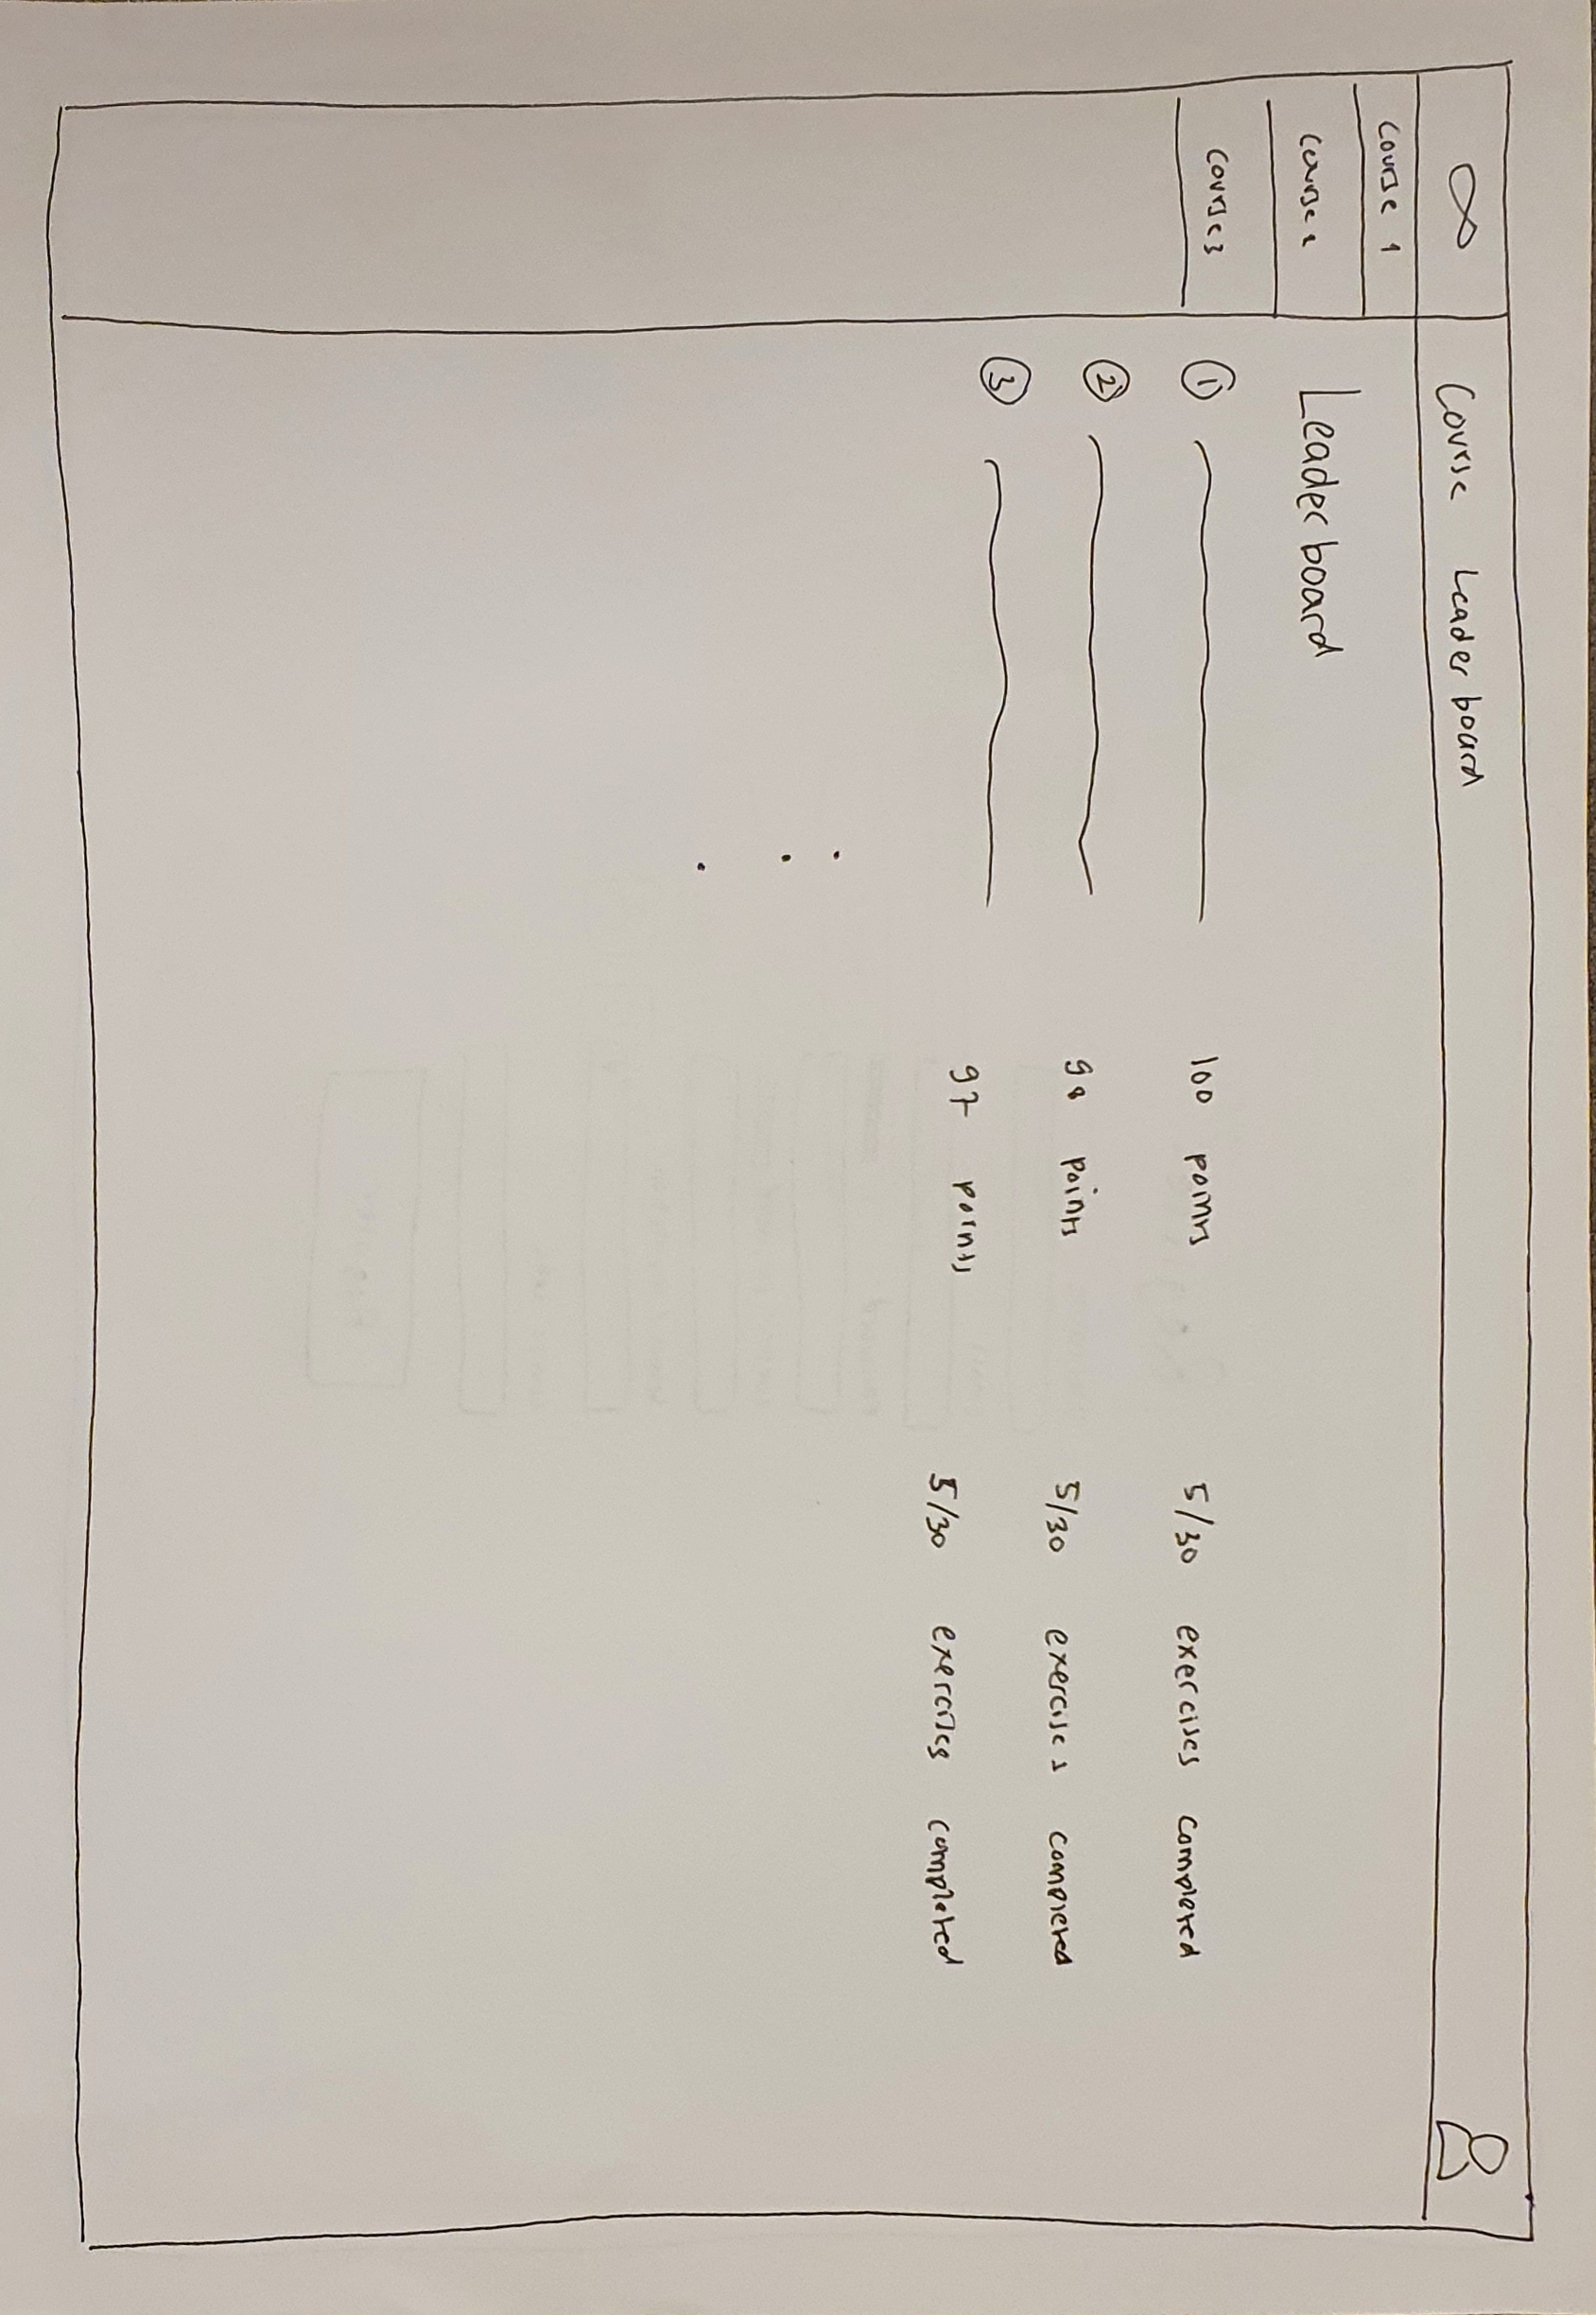 ∞ Course Leaderboard
Course 1
Course 2
Course 3
Leaderboard
① 100 points 5/30 exercises completed
② 98 points 5/30 exercises completed
③ 97 points 5/30 exercises completed